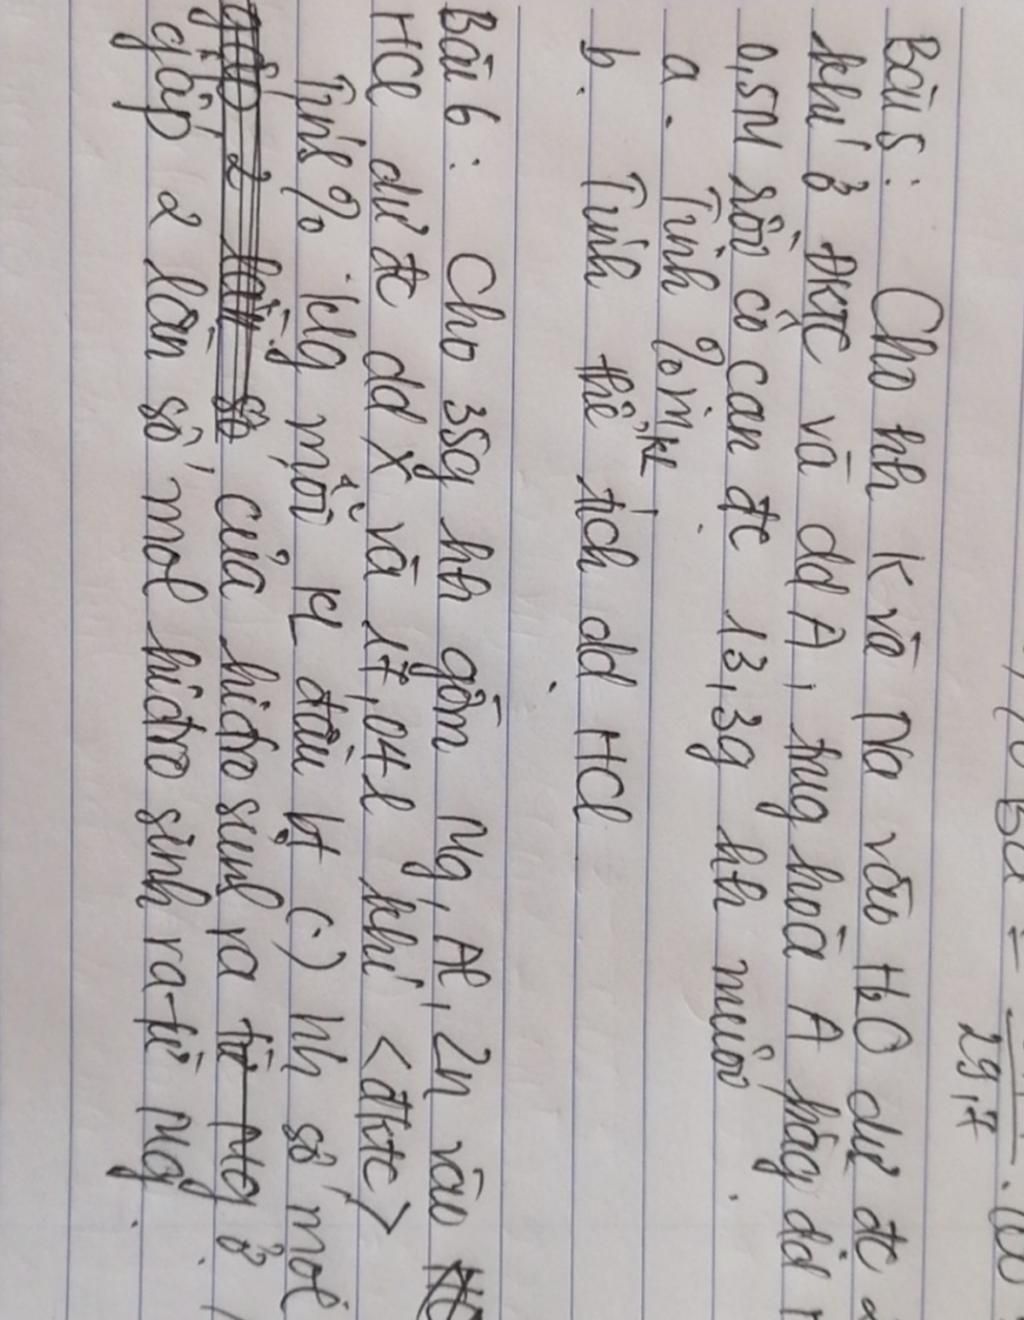 Bài 5: Cho hh K và Na vào H2O dư đc
khí ở ĐKTC và dd A, trug hoà A bằg dd
0,5M rồi cô cạn đc 13,3g hh muối.
a. Tính %m,KL
b. Tính thể tích dd HCl
Bài 6: Cho 35g hh gồm Mg, Al, Zn vào
HCl dư đc dd X và 17,04l khí <đktc>
Tính % klg mỗi KL đầu bt (.) hh số mol
của hidro sinh ra ở
gấp 2 lần số mol hidro sinh ra từ Mg.
29,7